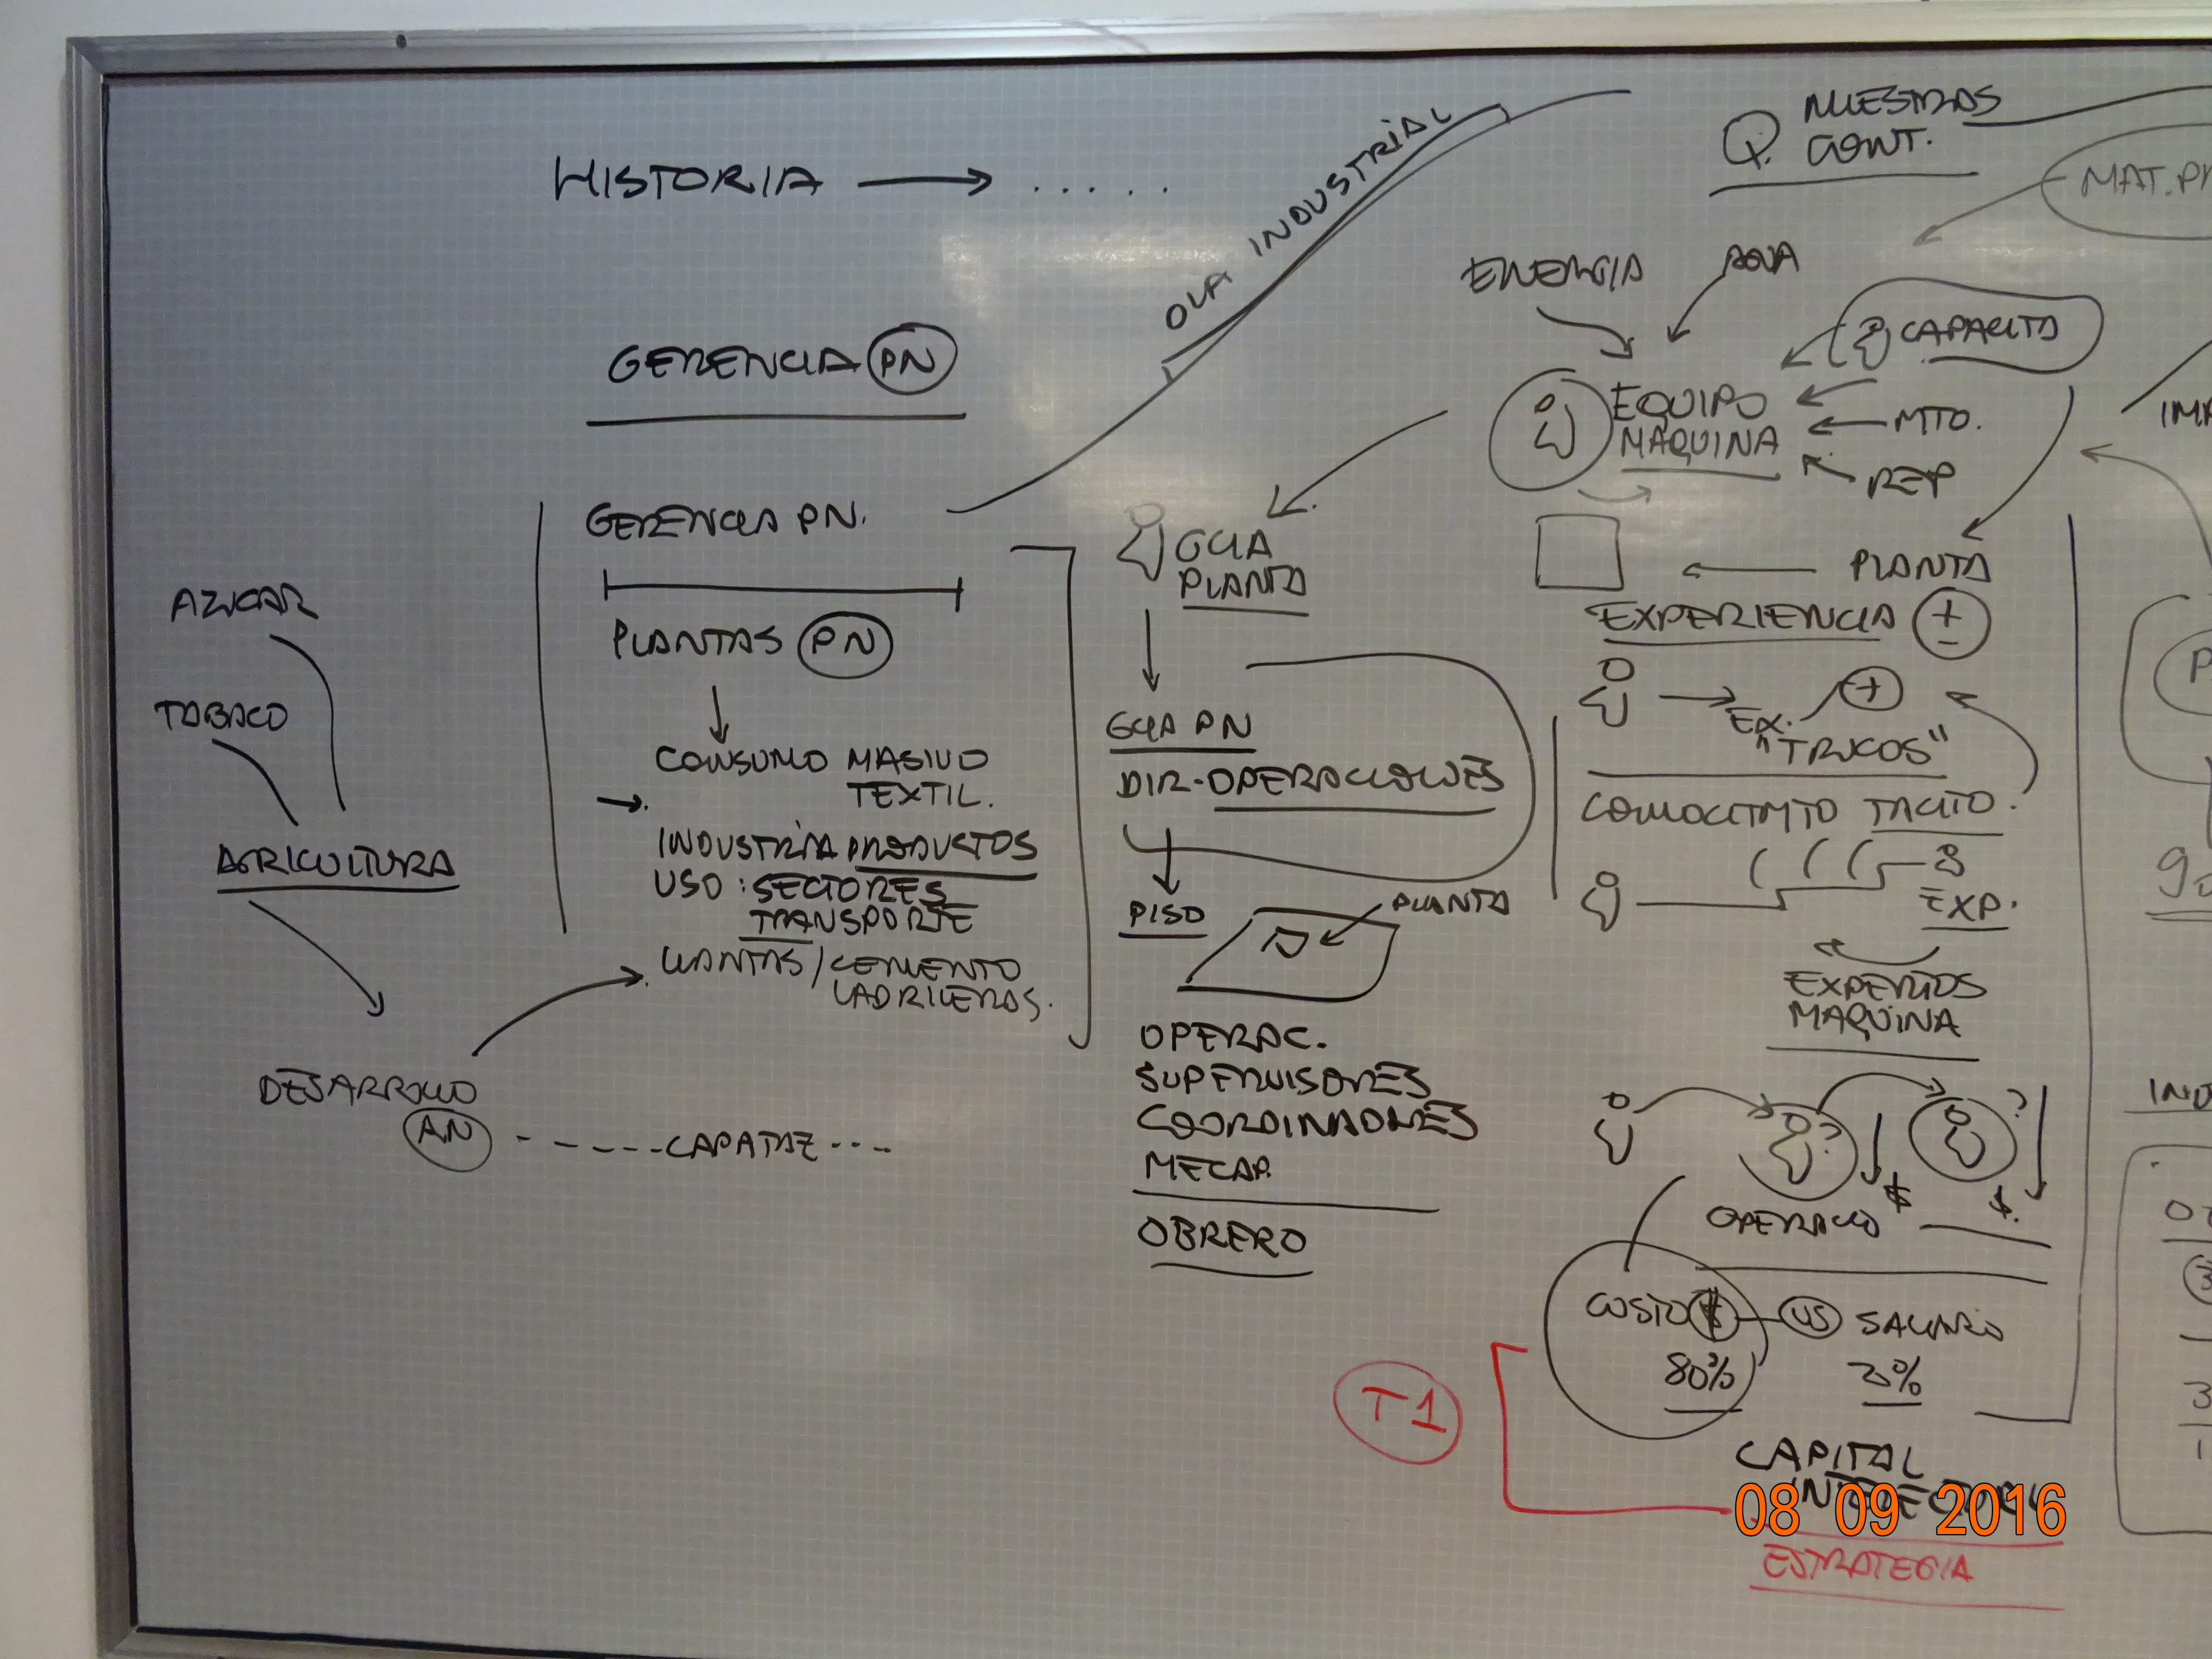 HISTORIA → . . . . .
GERENCIA PN
GERENCIA PN.
PLANTAS PN
CONSUMO MASIVO
TEXTIL.
INDUSTRIA PRODUCTOS
USO : SECTORES
TRANSPORTE
LLANTAS / CEMENTO
LADRILLERAS.
AZUCAR
TABACO
AGRICULTURA
DESARROLLO
AN - - - - - - CAPATAZ - - - -
OLA INDUSTRIAL
GCIA
PLANTA
GCIA PN
DIR-OPERACIONES
PISO
PLANTA
OPERAC.
SUPERVISORES
COORDINADORES
OBRERO
Q. NUESTRAS
CONT.
ENERGIA
AGUA
CAPACITA
EQUIPO
MAQUINA
MTO.
REP
PLANTA
EXPERIENCIA + -
EX. +
"TRUCOS"
CONOCIMTO TACITO.
EXP.
EXPERTOS
MAQUINA
? ? $ $.
OPERACIO
COSTO $ US SALARIO
80% 20%
T1
CAPITAL
INTELECTUAL
08 09 2016
ESTRATEGIA